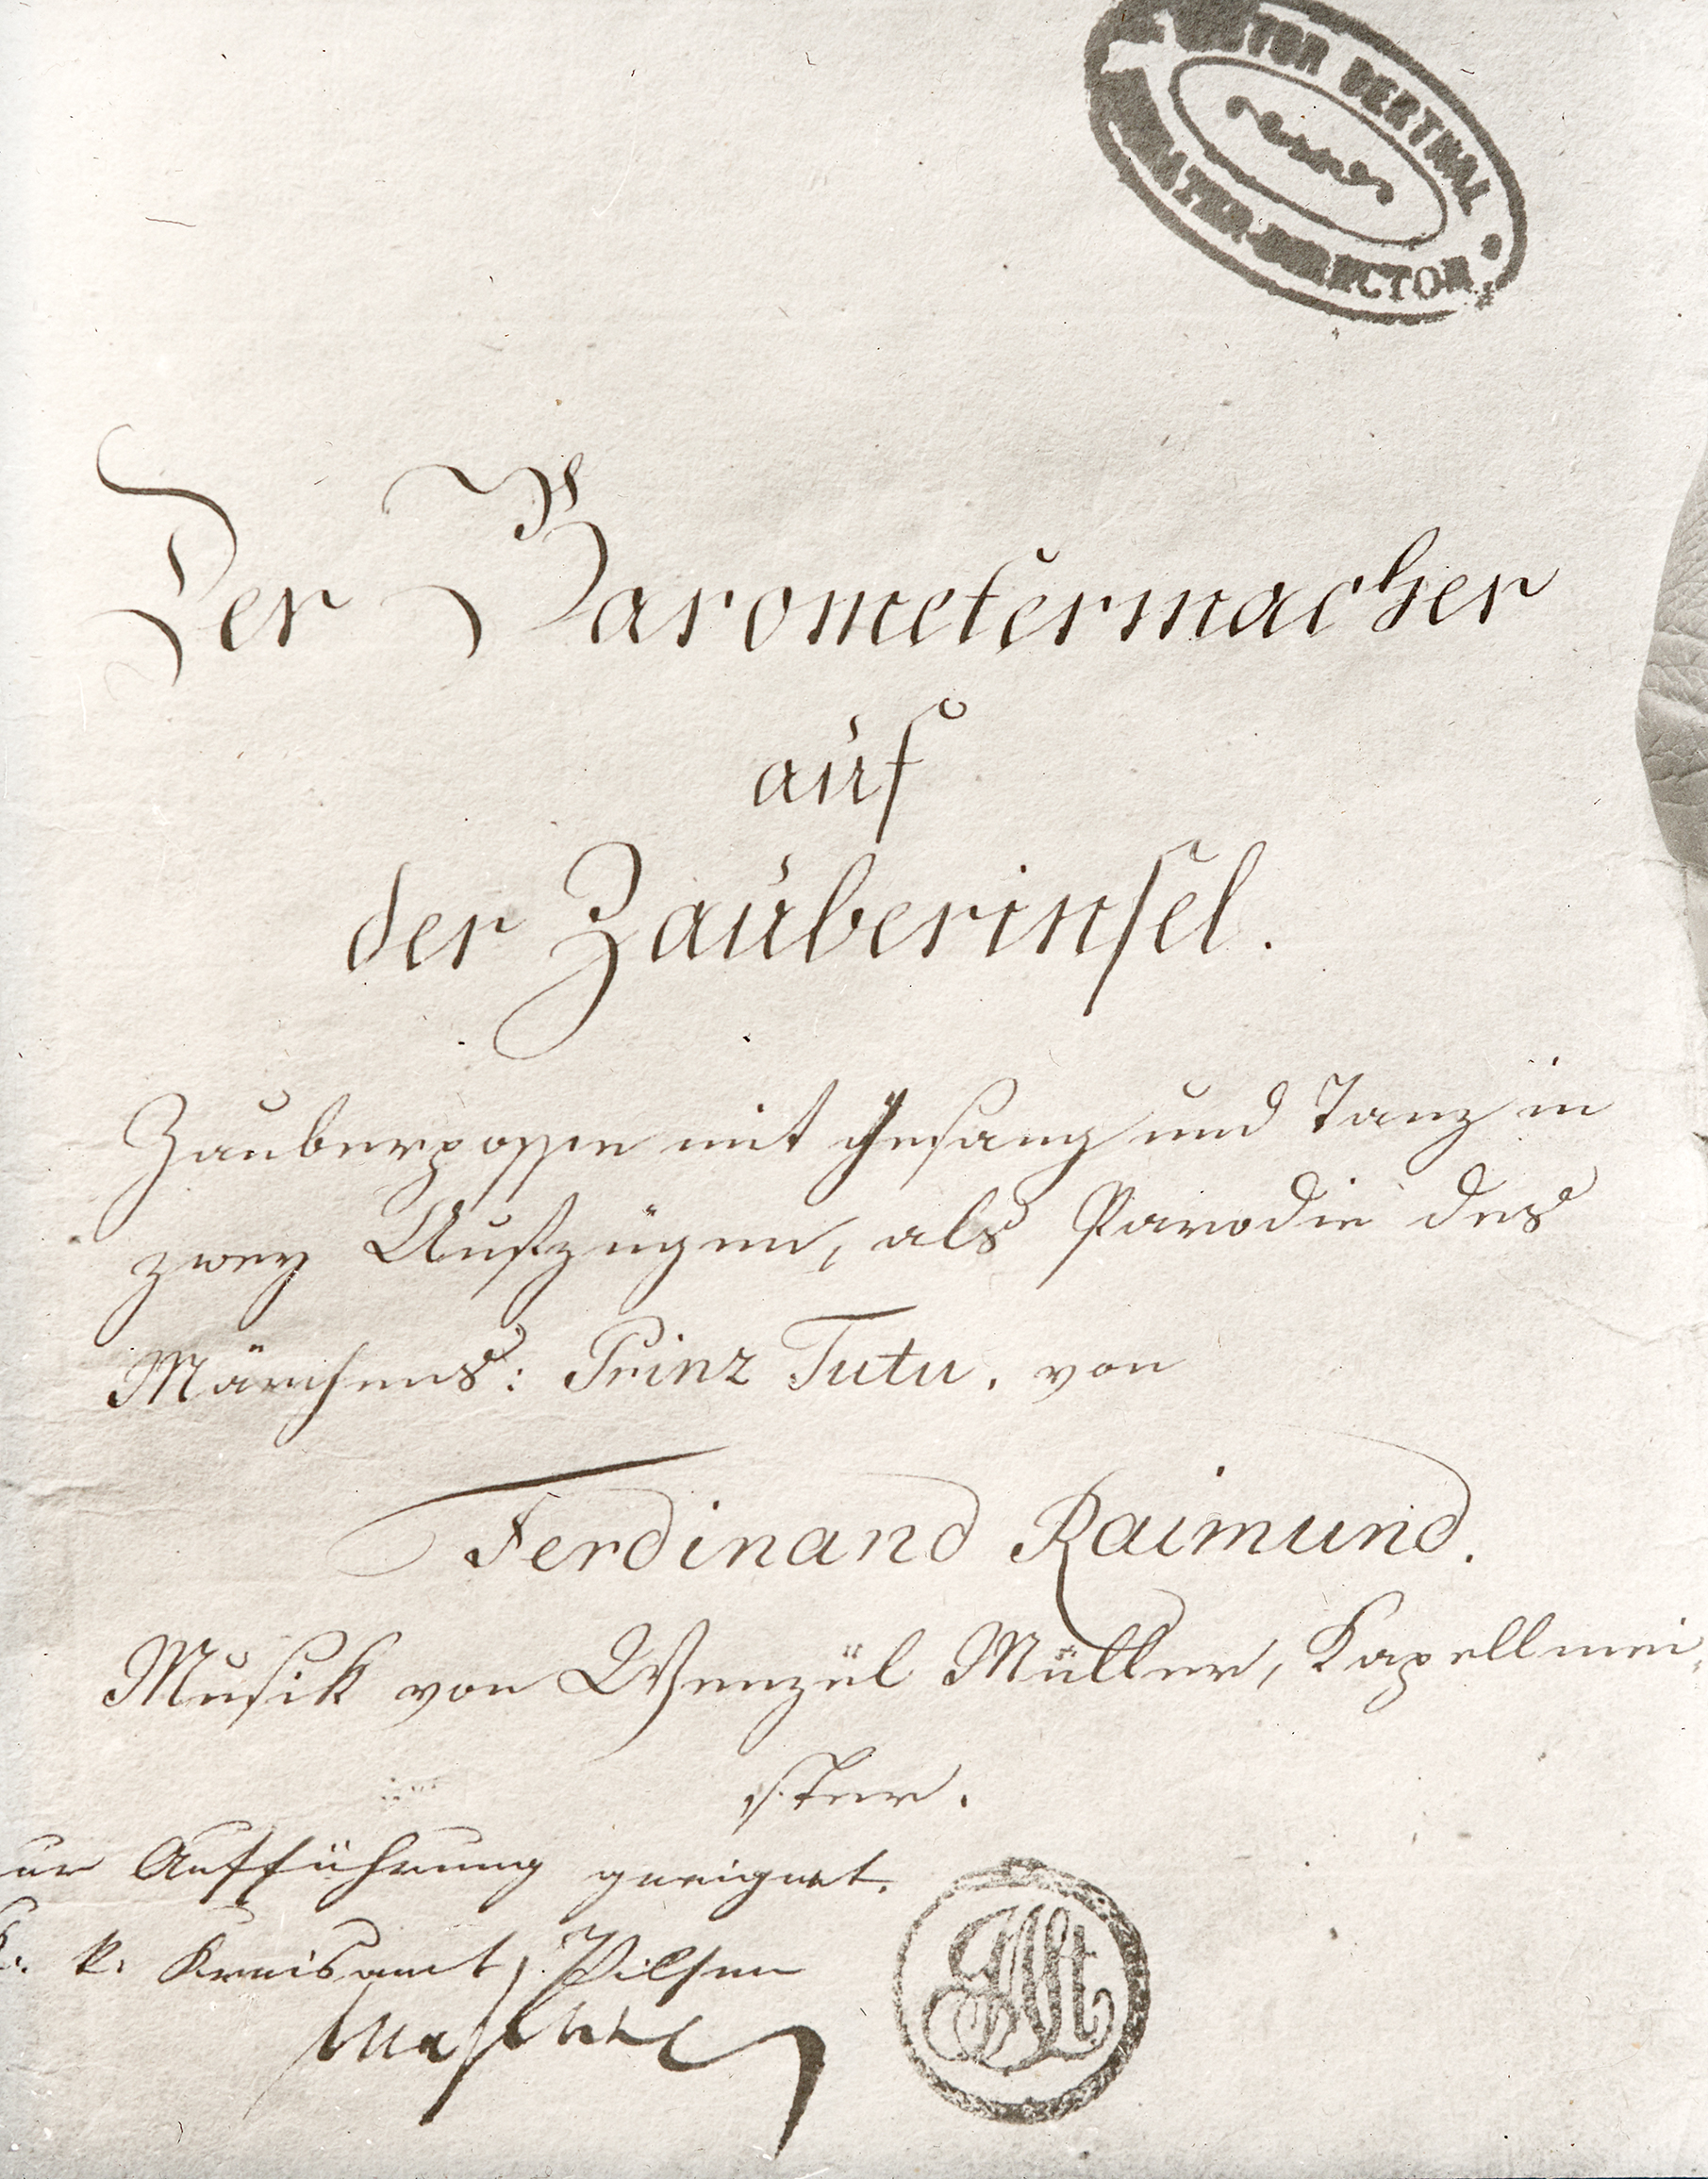 BERTHAL
THEATER-DIRECTOR
Der Barometermacher
auf
der Zauberinsel.
Zauberposse mit Gesang und Tanz in
zwey Aufzügen, als Parodie des
Märchens: Prinz Tutu. von
Ferdinand Raimund.
Musik von Wenzel Müller, Kapellmei-
ster.
ur Aufführung geeignet.
K. k. Kreisamt, Pilsen